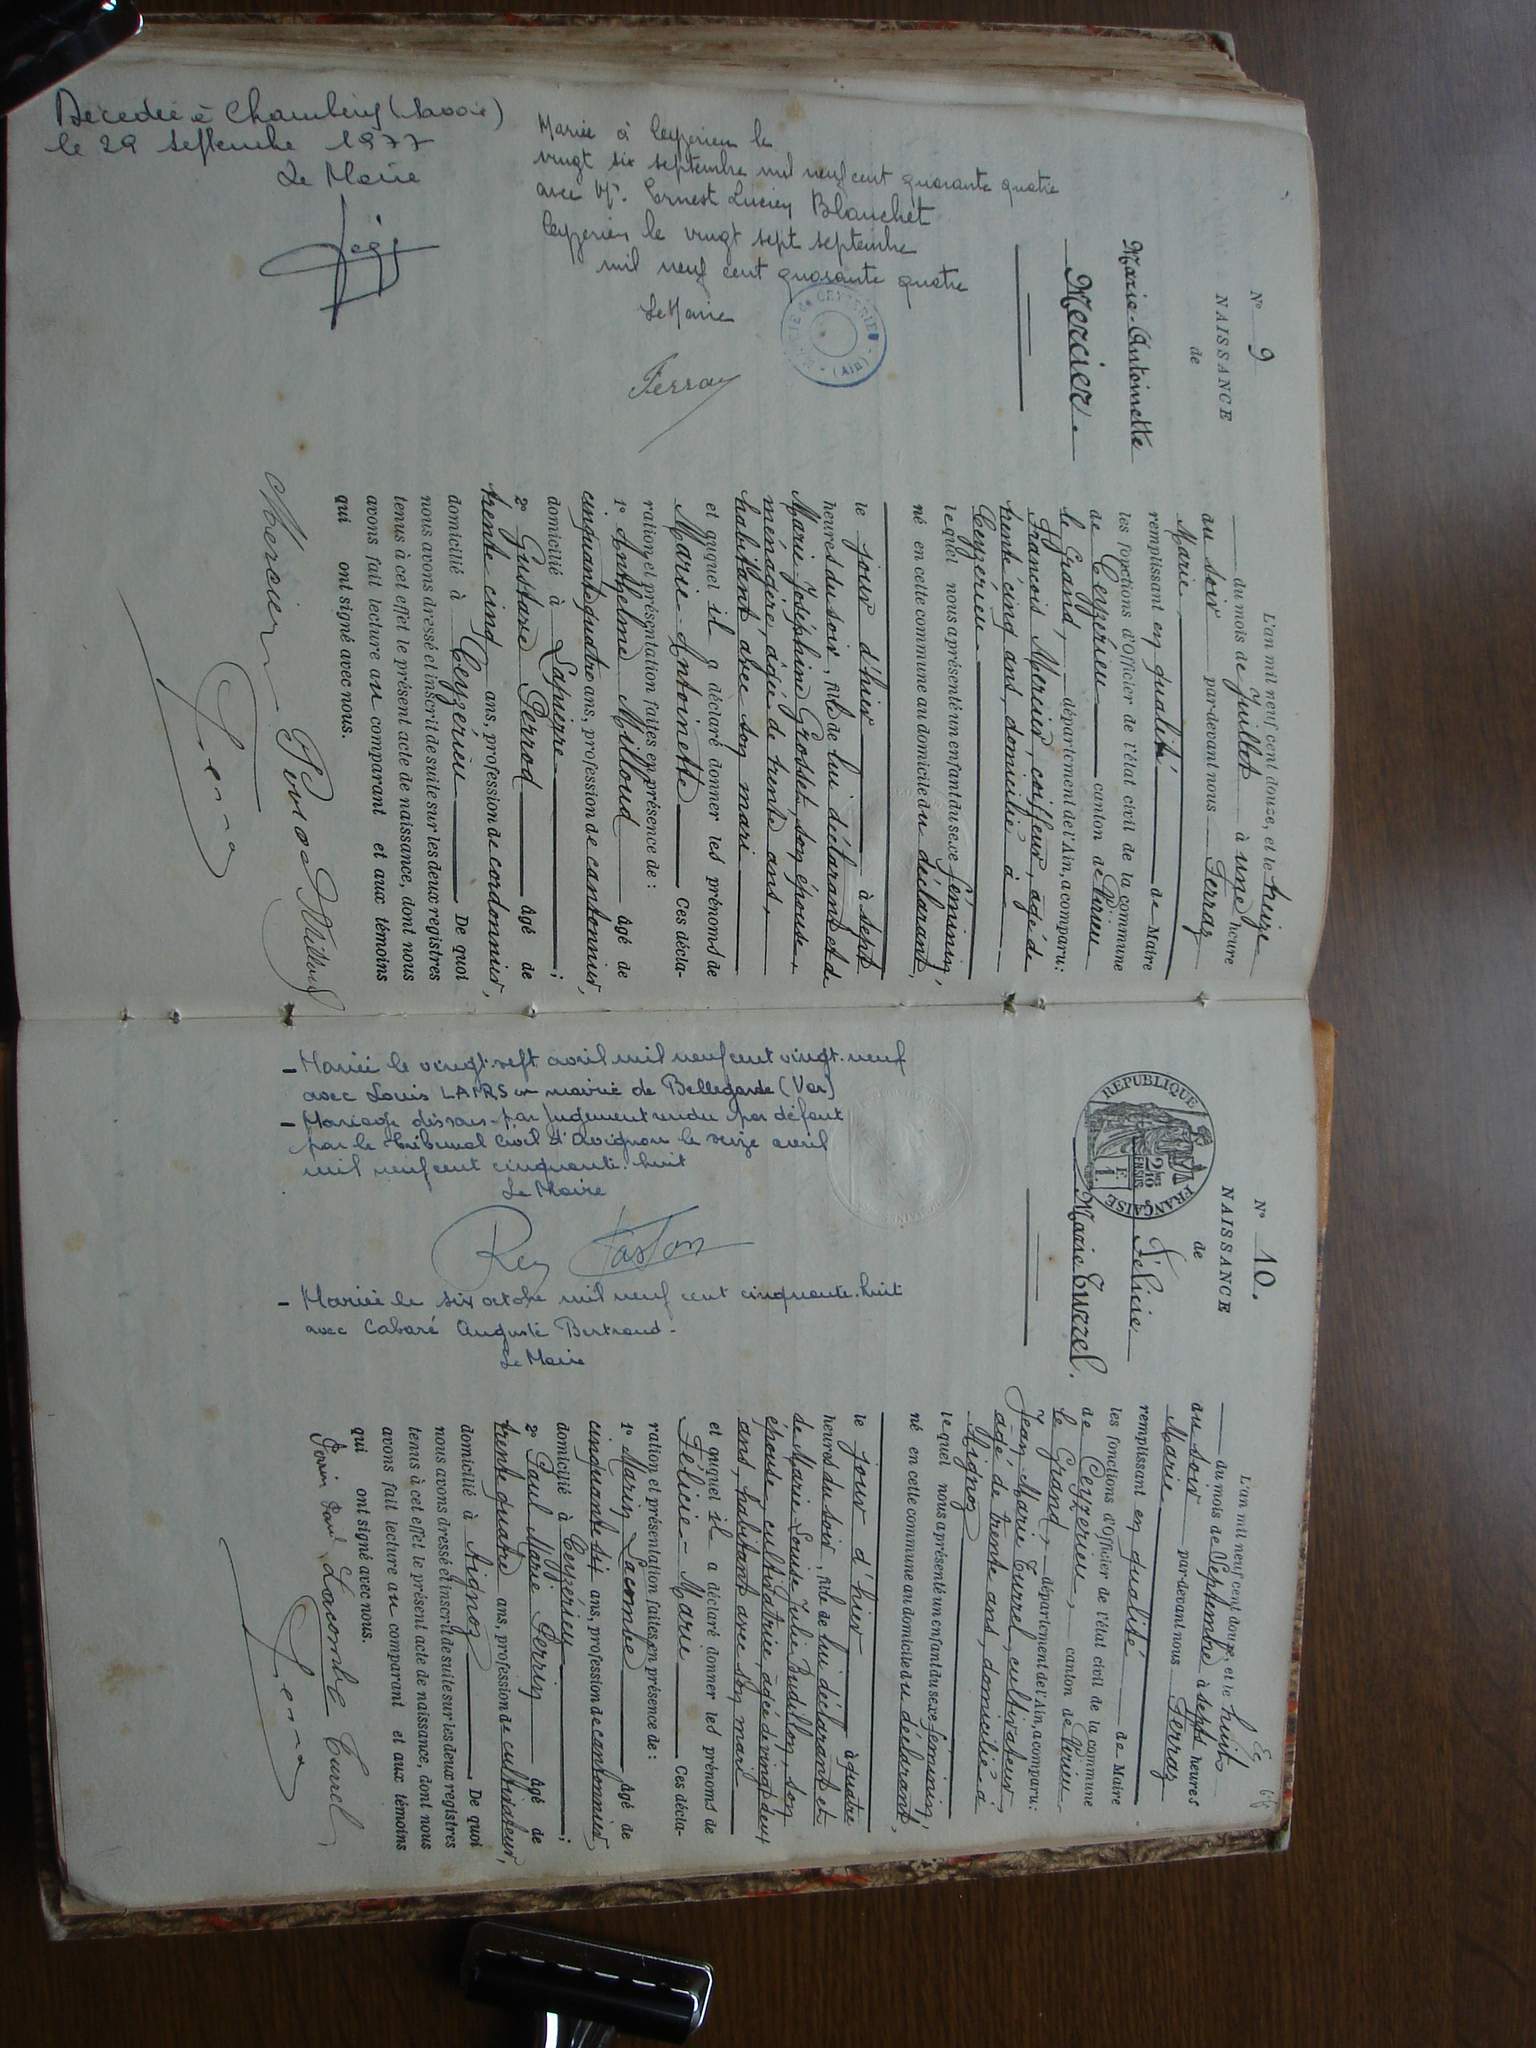 N° 9
NAISSANCE
de
Marie-Antoinette
Mercier.
L'an mil neuf cent douze, et le treize
du mois de Juillet à une heure
du soir par-devant nous Ferraz
Marie
remplissant en qualité de Maire
les fonctions d'Officier de l'état civil de la commune
de Ceyzérieu canton de Virieu
le Grand, département de l'Ain, a comparu:
François Mercier, coiffeur, âgé de
trente cinq ans, domicilié à
Ceyzérieu
lequel nous a présenté un enfant du sexe féminin,
né en cette commune au domicile du déclarant,
le jour d'hier à sept
heures du soir, fille de lui déclarant et de
Marie Joséphine Grosset, son épouse,
ménagère, âgée de trente ans,
habitant avec son mari
et auquel il a déclaré donner les prénoms de
Marie-Antoinette Ces décla-
ration et présentation faites en présence de:
1° Anthelme Milloud âgé de
cinquante quatre ans, profession de cantonnier,
domicilié à Lapierre;
2° Gustave Perrod âgé de
trente cinq ans, profession de cordonnier,
domicilié à Ceyzérieu. De quoi
nous avons dressé et inscrit de suite sur les deux registres
tenus à cet effet le présent acte de naissance, dont nous
avons fait lecture au comparant et aux témoins
qui ont signé avec nous.
Mercier Perrod Milloud
Ferraz
Mariée à Ceyzérieu le
vingt six septembre mil neuf cent quarante quatre
avec Mr. Ernest Lucien Blanchet
Ceyzérieu le vingt sept septembre
mil neuf cent quarante quatre
Le Maire
Ferraz
MAIRIE de CEYZERIEU (AIN)
Décédée à Chambéry (Savoie)
le 29 septembre 1977
Le Maire
N° 10.
NAISSANCE
de
Félicie
Marie Turrel.
RÉPUBLIQUE FRANÇAISE
L'an mil neuf cent douze, et le huit
du mois de Septembre à sept heures
du soir par-devant nous Ferraz
Marie
remplissant en qualité de Maire
les fonctions d'Officier de l'état civil de la commune
de Ceyzerieu, canton de Virieu
le Grand, département de l'Ain, a comparu:
Jean-Marie Turrel, cultivateur,
âgé de trente ans, domicilié à
Aignoz
lequel nous a présenté un enfant du sexe féminin,
né en cette commune au domicile du déclarant,
le jour d'hier à quatre
heures du soir, fille de lui déclarant et
de Marie-Louise Julie Budillon, son
épouse, cultivatrice âgée de vingt deux
ans, habitant avec son mari
et auquel il a déclaré donner les prénoms de
Félicie-Marie Ces décla-
ration et présentation faites en présence de:
1° Marin Lacombe âgé de
cinquante six ans, profession de cantonnier
domicilié à Ceyzérieu;
2° Paul Marie Perrin âgé de
trente quatre ans, profession de cultivateur,
domicilié à Aignoz. De quoi
nous avons dressé et inscrit de suite sur les deux registres
tenus à cet effet le présent acte de naissance, dont nous
avons fait lecture au comparant et aux témoins
qui ont signé avec nous.
Perrin Paul Lacombe Turrel
Ferraz
- Mariée le vingt-sept avril mil neuf cent vingt-neuf
avec Louis en mairie de Bellegarde (Var)
- Mariage dissous par jugement rendu par défaut
par le tribunal civil d'Avignon le seize avril
mil neuf cent cinquante-huit
Le Maire
Rey Gaston
- Mariée le six octobre mil neuf cent cinquante-huit
avec Cabaré Auguste Bertrand-
Le Maire